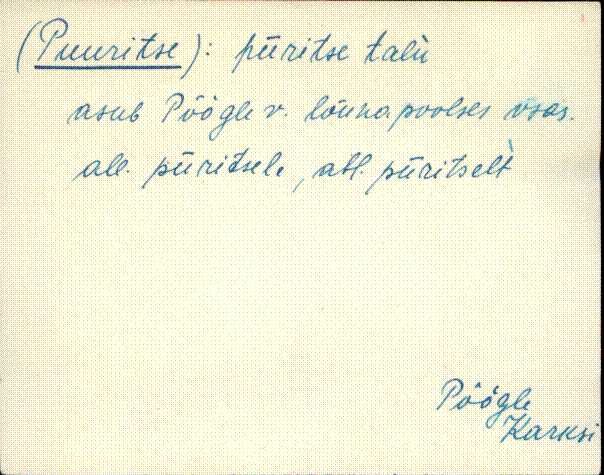 (Puuritse): püritse talù
asub Pöögle v. lõunapoolses osas.
all. püritsele, abl. püritselt
Pöögle
Karksi